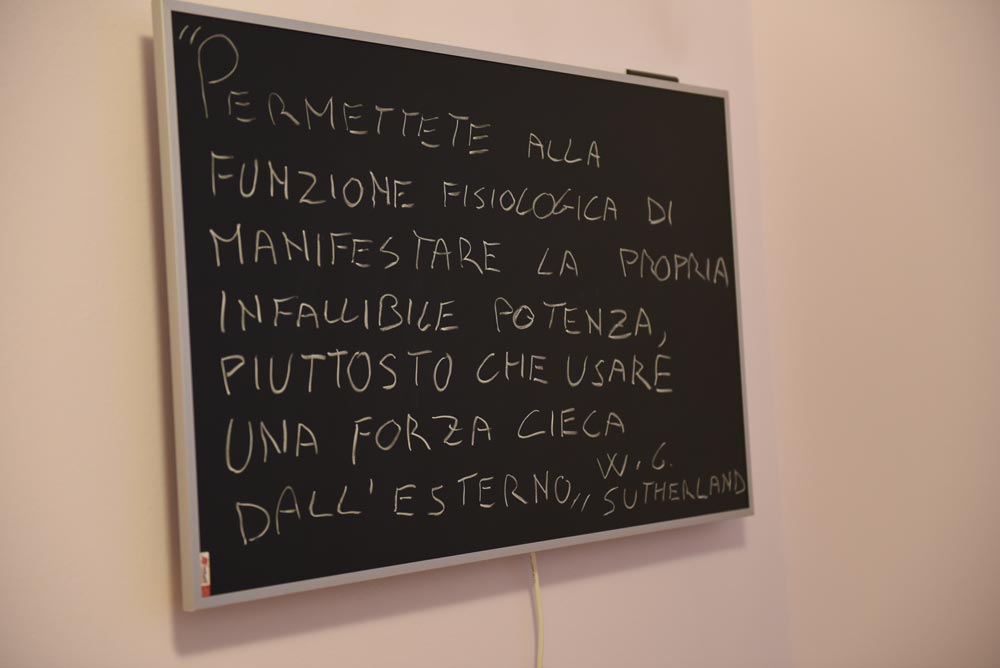 "PERMETTETE ALLA
FUNZIONE FISIOLOGICA DI
MANIFESTARE LA PROPRIA
INFALLIBILE POTENZA,
PIUTTOSTO CHE USARE
UNA FORZA CIECA
DALL'ESTERNO,,
W. G.
SUTHERLAND